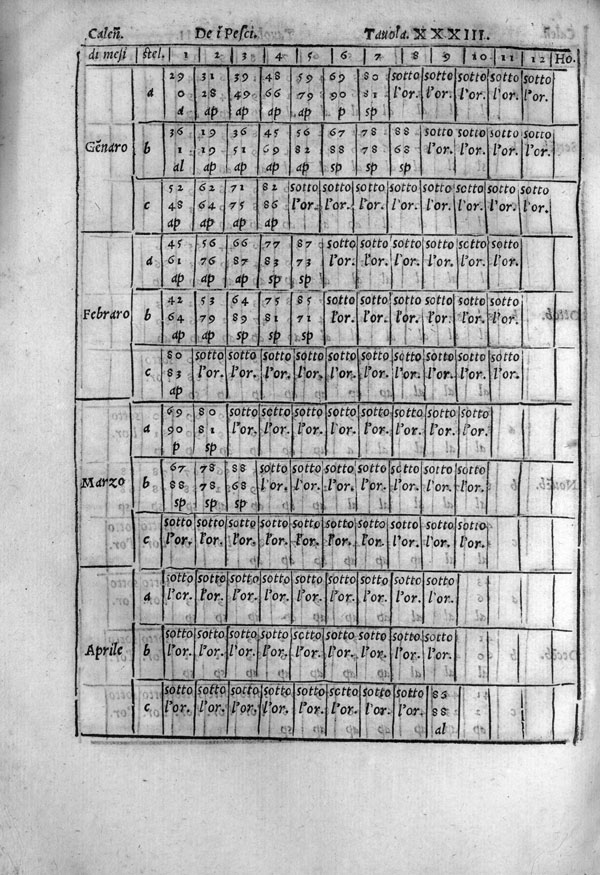 Caleñ. De i Pesci. Tavola. XXXIII.
di mesi stel. 1 2 3 4 5 6 7 8 9 10 11 12 Ho.
29 31 39 48 59 69 80 sotto sotto sotto sotto sotto
a 0 28 49 66 79 90 81 l'or. l'or. l'or. l'or. l'or.
d ap ap ap ap p sp
36 19 36 45 56 67 78 88 sotto sotto sotto sotto
Gẽnaro b 1 19 51 69 82 88 78 68 l'or. l'or. l'or. l'or.
al ap ap ap sp sp sp
52 62 71 82 sotto sotto sotto sotto sotto sotto sotto sotto
c 48 64 75 86 l'or. l'or. l'or. l'or. l'or. l'or. l'or. l'or.
ap ap ap ap
45 56 66 77 87 sotto sotto sotto sotto sotto sotto
a 61 76 87 83 73 l'or. l'or. l'or. l'or. l'or. l'or.
ap ap ap sp sp
42 53 64 75 85 sotto sotto sotto sotto sotto sotto
Febraro b 64 79 89 81 71 l'or. l'or. l'or. l'or. l'or. l'or.
ap ap sp sp sp
80 sotto sotto sotto sotto sotto sotto sotto sotto sotto sotto
c 83 l'or. l'or. l'or. l'or. l'or. l'or. l'or. l'or. l'or. l'or.
ap
69 80 sotto sotto sotto sotto sotto sotto sotto sotto
a 90 81 l'or. l'or. l'or. l'or. l'or. l'or. l'or. l'or.
p sp
67 78 88 sotto sotto sotto sotto sotto sotto sotto
Marzo b 88 78 68 l'or. l'or. l'or. l'or. l'or. l'or. l'or.
sp sp sp
sotto sotto sotto sotto sotto sotto sotto sotto sotto sotto
c l'or. l'or. l'or. l'or. l'or. l'or. l'or. l'or. l'or. l'or.
sotto sotto sotto sotto sotto sotto sotto sotto sotto
a l'or. l'or. l'or. l'or. l'or. l'or. l'or. l'or. l'or.
sotto sotto sotto sotto sotto sotto sotto sotto sotto
Aprile b l'or. l'or. l'or. l'or. l'or. l'or. l'or. l'or. l'or.
sotto sotto sotto sotto sotto sotto sotto sotto 83
c l'or. l'or. l'or. l'or. l'or. l'or. l'or. l'or. 88
al